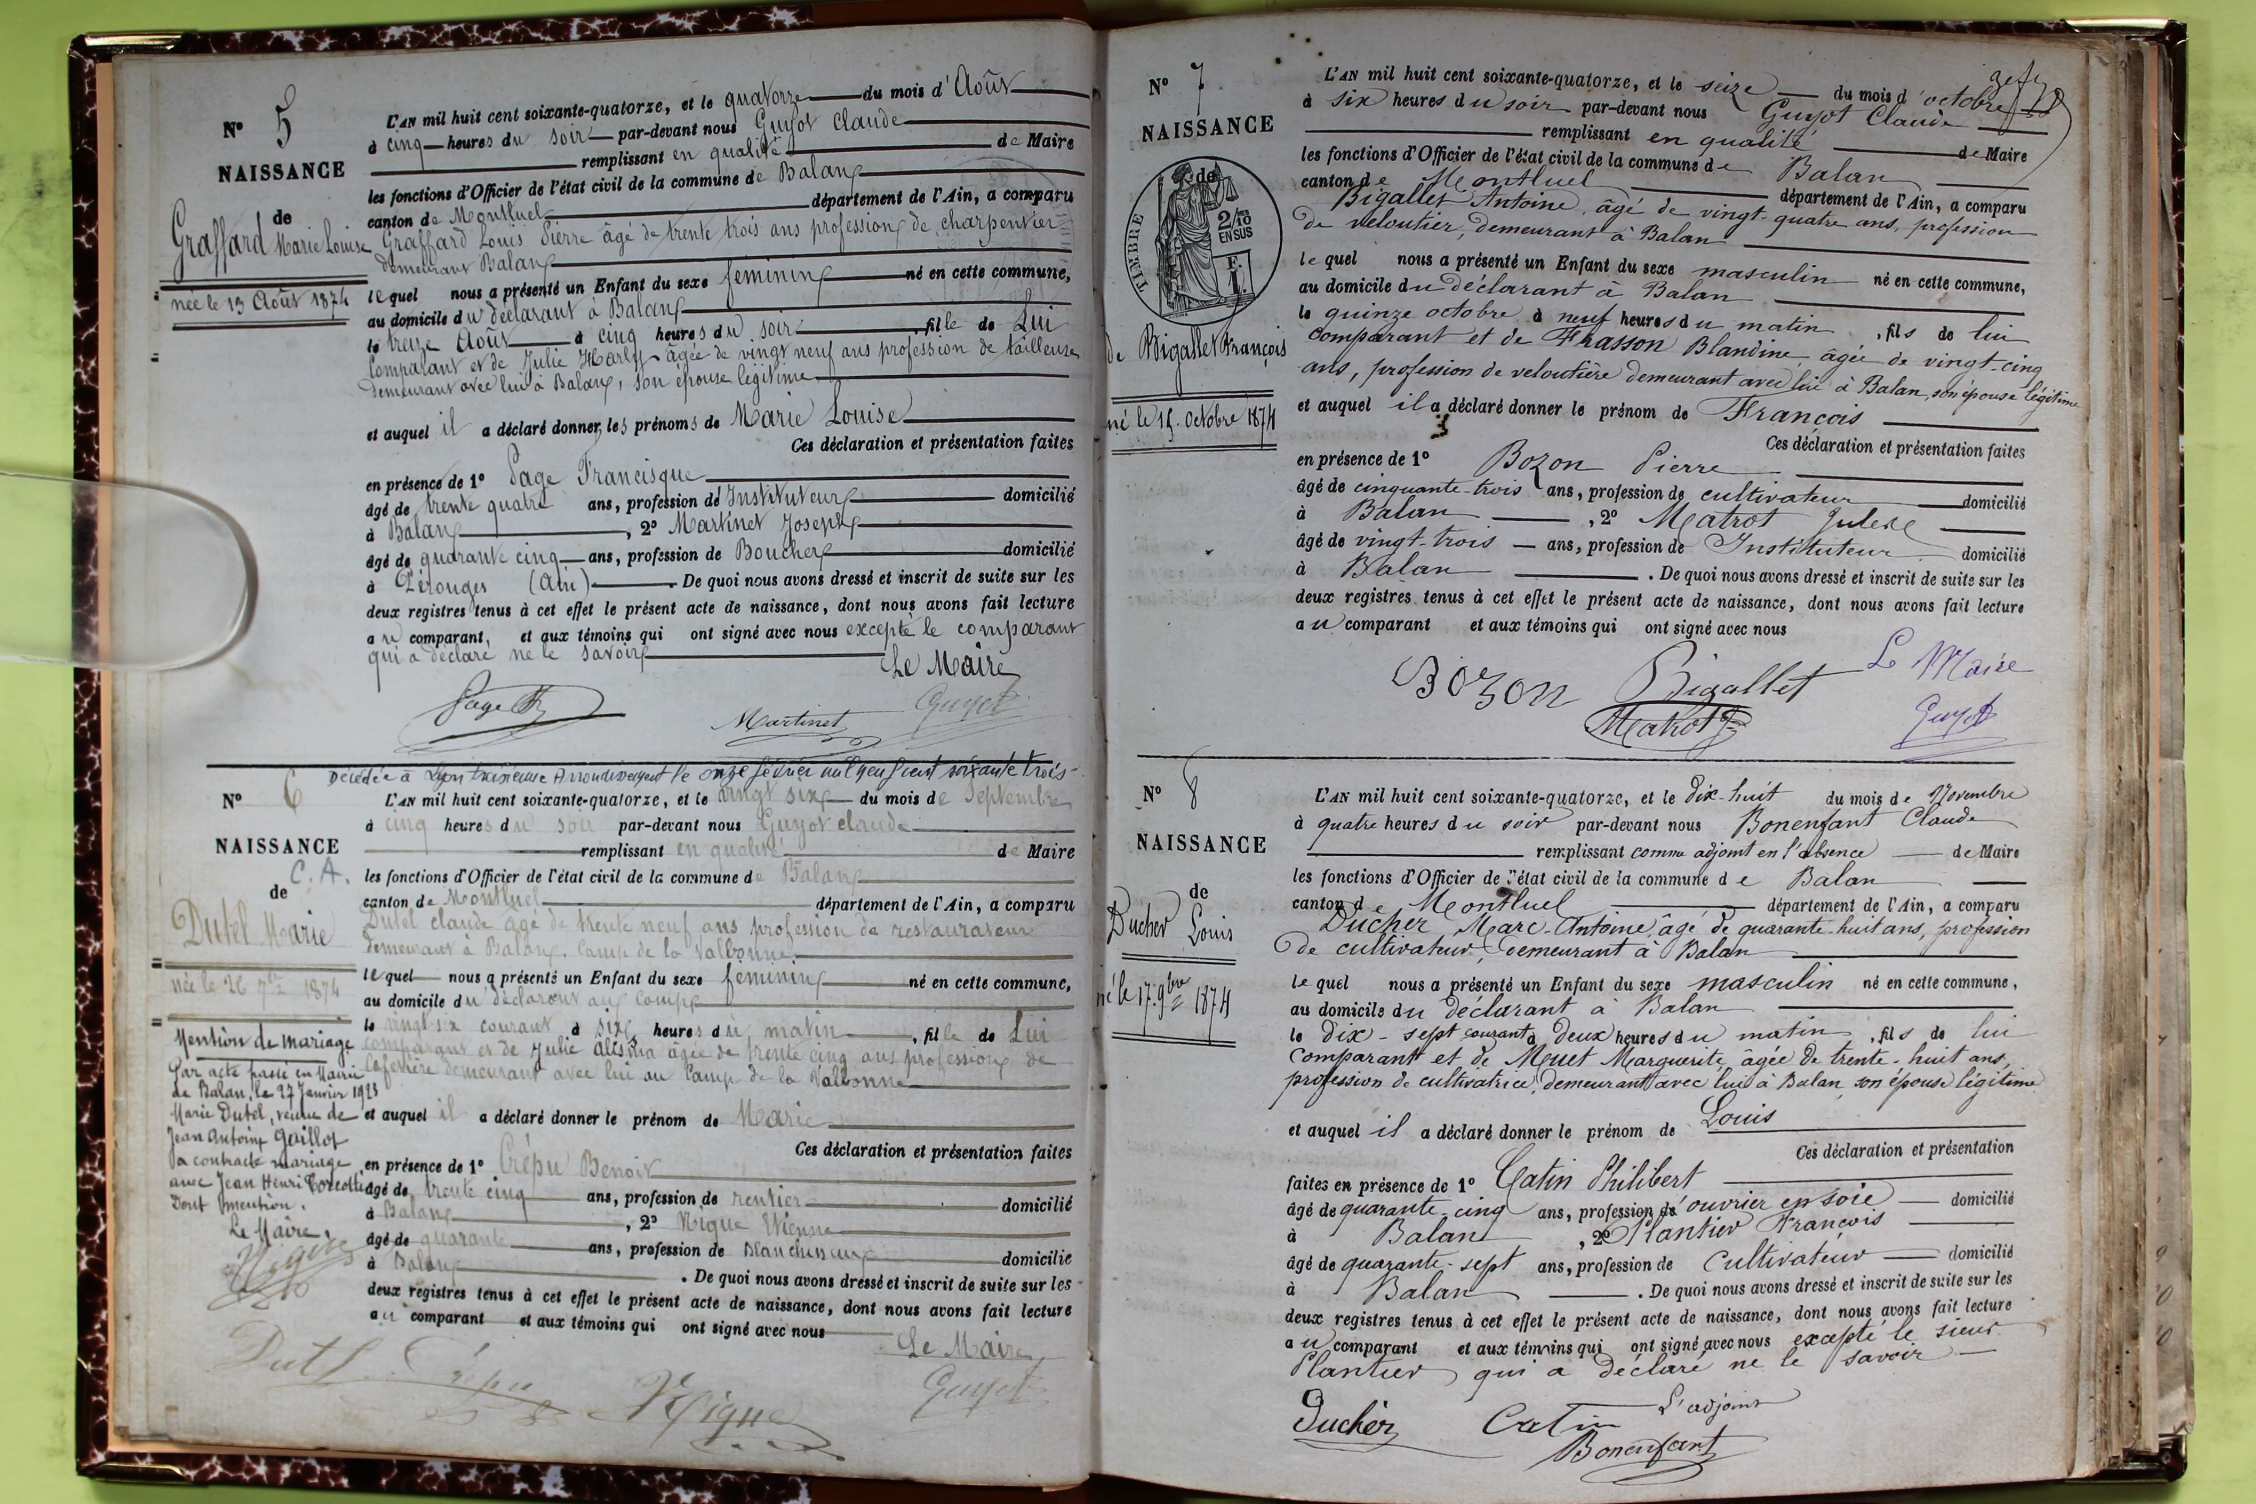 N° 5
NAISSANCE
de
Graffard Marie Louise
née le 13 Août 1874
L'AN mil huit cent soixante-quatorze, et le quatorze du mois d'Août
à cinq heures du soir par-devant nous Guyot Claude
remplissant en qualité de Maire
les fonctions d'Officier de l'état civil de la commune de Balan
canton de Montluel département de l'Ain, a comparu
Graffard Louis Pierre âgé de trente trois ans profession de charpentier
demeurant Balan
lequel nous a présenté un Enfant du sexe féminin né en cette commune,
au domicile du déclarant à Balan
le treize Août à cinq heures du soir, fille de Lui
Comparant et de Julie Marly âgée de vingt neuf ans profession de tailleuse
demeurant avec lui à Balan, son épouse légitime
et auquel il a déclaré donner les prénoms de Marie Louise
Ces déclaration et présentation faites
en présence de 1° Page Francisque
âgé de trente quatre ans, profession de Instituteur domicilié
à Balan, 2° Martinet Joseph
âgé de quarante cinq ans, profession de Boucher domicilié
à Pérouges (Ain). De quoi nous avons dressé et inscrit de suite sur les
deux registres tenus à cet effet le présent acte de naissance, dont nous avons fait lecture
au comparant, et aux témoins qui ont signé avec nous excepté le comparant
qui a déclaré ne le savoir
Le Maire
Page Martinet Guyot
Décédée à Lyon troisième Arrondissement le onze février mil neuf cent soixante trois
N° 6
NAISSANCE
C. A.
de
Dutel Marie
née le 26 7bre 1874
Mention de mariage
Par acte passé en Mairie
de Balan, le 27 Janvier 1923
Marie Dutel, veuve de
Jean Antoine Gaillot
a contracté mariage
avec Jean Henri
Dont mention.
Le Maire,
L'AN mil huit cent soixante-quatorze, et le vingt six du mois de Septembre
à cinq heures du soir par-devant nous Guyot claude
remplissant en qualité de Maire
les fonctions d'Officier de l'état civil de la commune de Balan
canton de Montluel département de l'Ain, a comparu
Dutel claude âgé de trente neuf ans profession de restaurateur
demeurant à Balan, Camp de la Valbonne
lequel nous a présenté un Enfant du sexe féminin né en cette commune,
au domicile du déclarant au camp
le vingt six courant à six heures du matin, fille de Lui
comparant et de Julie âgée de trente cinq ans profession de
cafetière demeurant avec lui au Camp de la Valbonne
et auquel il a déclaré donner le prénom de Marie
Ces déclaration et présentation faites
en présence de 1° Crépu Benoit
âgé de trente cinq ans, profession de rentier domicilié
à Balan, 2° Nique Etienne
âgé de quarante ans, profession de Blanchisseur domicilié
à Balan. De quoi nous avons dressé et inscrit de suite sur les
deux registres tenus à cet effet le présent acte de naissance, dont nous avons fait lecture
au comparant et aux témoins qui ont signé avec nous
Le Maire
Dutel Crépu Nique Guyot
N° 7
NAISSANCE
de
TIMBRE
2/10
EN SUS
F.
1.
de Bigallet François
né le 15 octobre 1874
L'AN mil huit cent soixante-quatorze, et le seize du mois d'octobre
à six heures du soir par-devant nous Guyot Claude
remplissant en qualité de Maire
les fonctions d'Officier de l'état civil de la commune de Balan
canton de Montluel département de l'Ain, a comparu
Bigallet Antoine, âgé de vingt-quatre ans, profession
de veloutier, demeurant à Balan
lequel nous a présenté un Enfant du sexe masculin né en cette commune,
au domicile du déclarant à Balan
le quinze octobre à neuf heures du matin, fils de lui
comparant et de Frasson Blandine âgée de vingt-cinq
ans, profession de veloutière demeurant avec lui à Balan, son épouse légitime
et auquel il a déclaré donner le prénom de François
Ces déclaration et présentation faites
en présence de 1° Bozon Pierre
âgé de cinquante-trois ans, profession de cultivateur domicilié
à Balan, 2° Matrot
âgé de vingt-trois ans, profession de Instituteur domicilié
à Balan. De quoi nous avons dressé et inscrit de suite sur les
deux registres tenus à cet effet le présent acte de naissance, dont nous avons fait lecture
au comparant et aux témoins qui ont signé avec nous
Bozon Bigallet Le Maire
Matrot Guyot
N° 8
NAISSANCE
de
Ducher Louis
né le 17 9bre 1874
L'AN mil huit cent soixante-quatorze, et le dix-huit du mois de Novembre
à quatre heures du soir par-devant nous Bonenfant Claude
remplissant comme adjoint en l'absence de Maire
les fonctions d'Officier de l'état civil de la commune de Balan
canton de Montluel département de l'Ain, a comparu
Ducher Marc-Antoine, âgé de quarante-huit ans, profession
de cultivateur, demeurant à Balan
lequel nous a présenté un Enfant du sexe masculin né en cette commune,
au domicile du déclarant à Balan
le dix-sept courant à deux heures du matin, fils de lui
comparant et de Muet Marguerite, âgée de trente-huit ans,
profession de cultivatrice, demeurant avec lui à Balan, son épouse légitime
et auquel il a déclaré donner le prénom de Louis
Ces déclaration et présentation
faites en présence de 1° Catin Philibert
âgé de quarante-cinq ans, profession d'ouvrier en soie domicilié
à Balan, 2° Plantier François
âgé de quarante-sept ans, profession de cultivateur domicilié
à Balan. De quoi nous avons dressé et inscrit de suite sur les
deux registres tenus à cet effet le présent acte de naissance, dont nous avons fait lecture
au comparant et aux témoins qui ont signé avec nous excepté le sieur
Plantier qui a déclaré ne le savoir
L'adjoint
Ducher Catin
Bonenfant